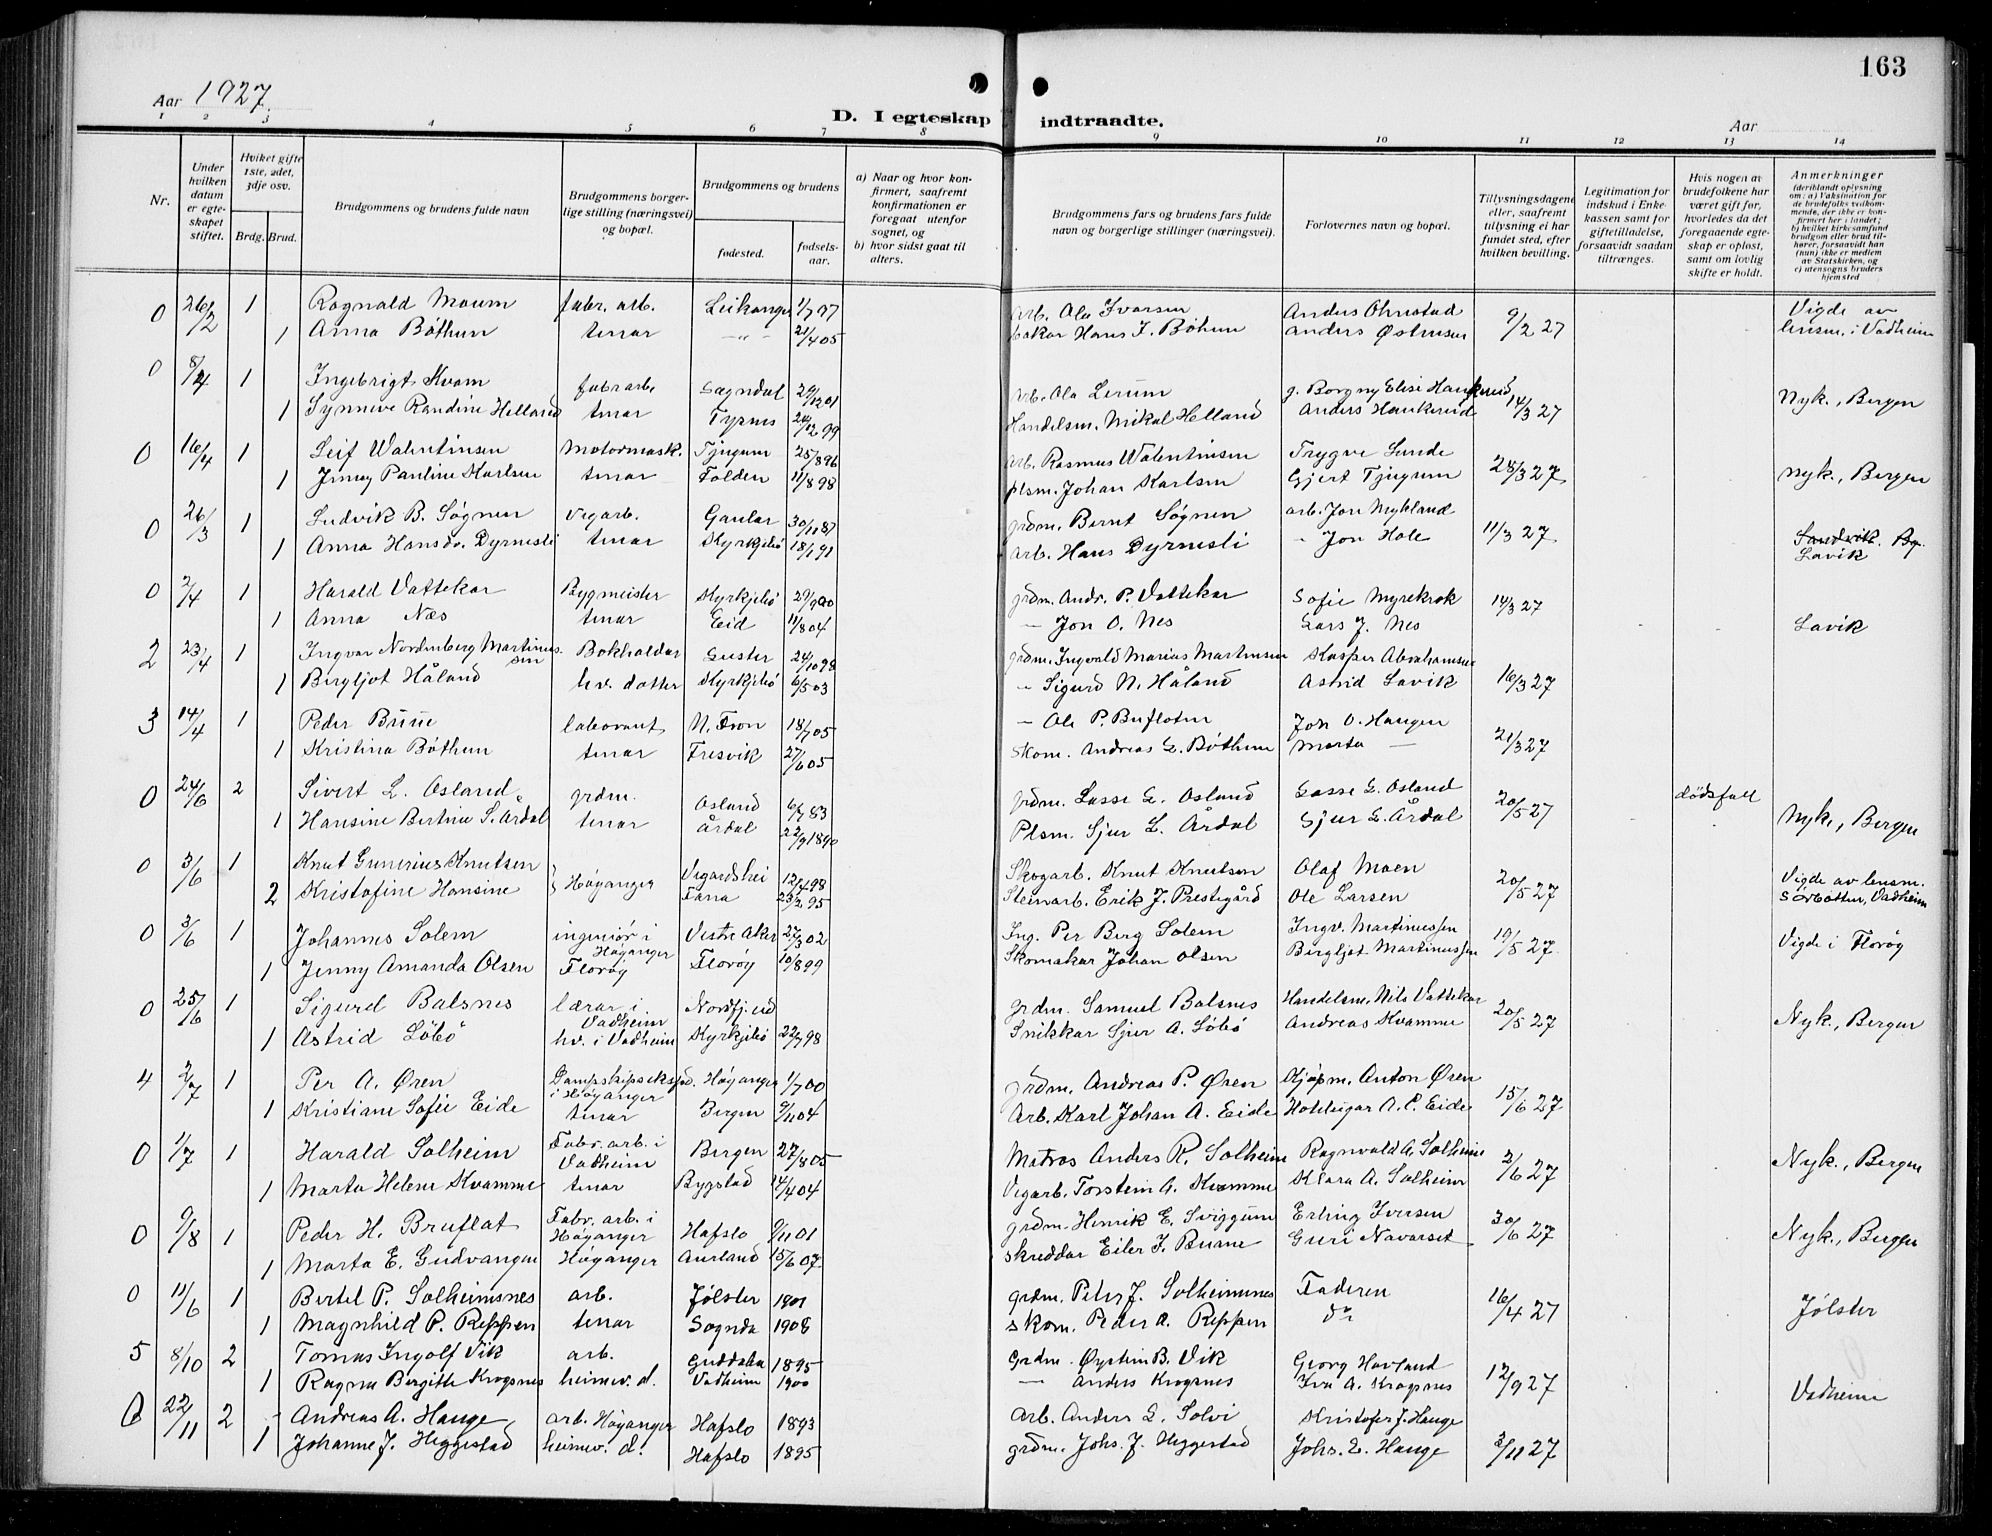 163
Aar 1927.
D. I egteskap indtraadte.
Aar
1 2 3 4 5 6 7 8 9 10 11 12 13 14
Nr.
Under hvilken datum er egteskapet stiftet.
Hviket gifte 1ste, 2det, 3dje osv.
Brdg. Brud.
Brudgommens og brudens fulde navn
Brudgommens borgerlige stilling (næringsvei) og bopæl.
Brudgommens og brudens
fødested.
fødselsaar.
a) Naar og hvor konfirmert, saafremt konfirmationen er foregaat utenfor sognet, og
b) hvor sidst gaat til alters.
Brudgommens fars og brudens fars fulde navn og borgerlige stillinger (næringsvei).
Forlovernes navn og bopæl.
Tillysningsdagene eller, saafremt tillysning ei har fundet sted, efter hvilken bevilling.
Legitimation for indskud i Enkekassen samt for giftetilladelse, forsaavidt saadan tiltrænges.
Hvis nogen av brudefolkene har været gift før, hvorledes da det foregaaende egteskap er opløst, samt om lovlig skifte er holdt.
Anmerkninger (deriblandt oplysning om: a) Vaksination for de brudefolks vedkommende, der ikke er konfirmert her i landet; b) hvilket kirkesamfund brudgom eller brud tilhører, forsaavidt han (hun) ikke er medlem av Statskirken, og c) utensogns bruders hjemsted
0 26/2 1 Ragnald Moum fabr. arb. Leikanger 1/7 97 Arb. Ola Ivarsen Anders Ohnstad 9/2 27 Vigde av
1 Anna Bøthun tenar — " — 21/4 05 bakar Hans J. Bøhun Anders Østensen lensm. i Vadheim
0 8/4 1 Ingebrigt Kvam fabr arb. Sogndal 29/12 01 Arb. Ola Lerum g. Borgny Elise Haukereid 14/3 27 Nyk., Bergen
1 Synneve Randine Helland tenar Tysnes 24/12 99 Handelsm. Mikal Helland Anders Haukereid
0 16/4 1 Leif Walentinsen Motormask. Tjugum 25/8 96 Arb. Rasmus Walentinsen Trygve Lunde 28/3 27 Nyk., Bergen
1 Jenny Pauline Karlsen tenar Folden 11/8 98 plsm. Johan Karlsen Gjert Tjugum
0 26/3 1 Ludvik B. Søgnen Vegarb. Gaular 30/11 87 grdm. Bernt Søgnen arb. Jon Mykland 11/3 27
1 Anna Hansdo. Dyrnesli tenar Kyrkjebø 18/1 91 Arb. Hans Dyrnesli - Jon Hole Sandvik. Bg. Lavik
0 2/4 1 Harald Vattekar Bygmeister Kyrkjebø 29/9 00 grdm. Andr. P. Vattekar Sofie Myrekrok 14/3 27
1 Anna Næs tenar Eid 11/8 04 — Jon O. Nes Lars J. Nes Lavik
2 23/4 1 Ingvar Nordenberg Martinussen Bokhaldar Luster 24/10 98 grdm. Ingvald Marius Martinsen Kasper Abrahamsen 16/3 27
1 Bergljot Håland hv. dotter Kyrkjebø 6/5 03 — Sigurd N. Håland Astrid Lavik
3 14/4 1 Peder Bruue laborant N. Fron 18/7 05 — Ole P. Bufloten Jon O. Haugen 21/3 27
1 Kristina Bøthun tenar Fresvik 27/6 05 Skom. Andreas G. Bøthun Marta —
0 24/6 2 Sivert L. Osland grdm. Osland 6/7 83 grdm. Lasse G. Osland Lasse G. Osland 20/5 27 dødsfall
1 Hansine Bertine S. Årdal tenar Årdal 22/9 1890 Plsm. Sjur L. Årdal Sjur G. Årdal Nyk., Bergen
0 3/6 1 Knut Gunerius Knutsen Høyanger Vegardshei 12/4 98 Skogarb. Knut Knutson Olaf Moen 20/5 27 Vigde av lensm.
2 Kristofine Hansine Fana 23/2 95 Steinarb. Erik J. Prestegård Ole Larsen Sørbotten, Vadheim
0 3/6 1 Johannes Solem ingeniør i Høyanger Vestre Aker 27/3 02 Ing. Per Berg Solem Ingv. Martinussen 19/5 27. Vigde i Florøy
1 Jenny Amanda Olsen Florøy Florøy 10/8 99 Skomakar Johan Olsen Bergljot Martinussen
0 25/6 1 Sigurd Balsnes lærar i Vadheim Nordfj.eid grdm. Samuel Balsnes Handelsm. Nils Vattekar 20/5 27 Nyk., Bergen
1 Astrid Løbø hv. i Vadheim Kyrkjebø 22/7 98 Snikkar Sjur A. Løbø Andreas Kvamme
4 2/7 1 Per A. Øren Dampskipseksped. i Høyanger Høyanger 1/7 00 grdm. Andreas P. Øren Kjøpm. Anton Øren 15/6 27
1 Kristiane Sofie Eide tenar Bergen 9/11 04 Arb. Karl Johan A. Eide Hotelleigar A. C. Eide
0 1/7 1 Harald Solheim Fabr. arb. i Vadheim Bergen 27/8 05 Matros Anders R. Solheim Ragnvald A. Solheim 2/6 27 Nyk., Bergen
1 Marta Helene Kvamme tenar Bygstad 14/4 04 Vegarb. Torstein A. Kvamme Klara A. Solheim
0 9/8 1 Peder H. Bruflat Fabr. arb. i Høyanger Hafslo 9/11 01 grdm. Henrik E. Sviggum Erling Iversen 30/6 27 Nyk., Bergen
1 Marta E. Gudvangen Høyanger Aurland 15/6 07. Skreddar Eiler J. Buene Guri Navarset
0 11/6 1 Bertel P. Solheimsnes arb. Jølster 1901 grdm. Peter J. Solheimsnes Faderen 16/4 27 Jølster
1 Magnhild P. Reppen tenar Sognda 1908 Skom. Peder A. Reppen do
5 8/10 2 Tomas Ingolf Vik arb. 1895 Grdm. Øystein B. Vik Georg Havland 12/9 27
1 Ragna Bergitte Krogsnes heimev. d. Vadheim 1900 — Anders Krogsnes Iva A. Krogsnes Vadheim
6 22/11 2 Andreas A. Hauge arb. Høyanger Hafslo 1893 Arb. Anders L. Solvi Kristofer J. Hauge
1 Johanne J. Heggestad heimev. d. Hafslo 1895 grdm. Johs. J. Heggestad Johs. L. Hauge 3/11 27